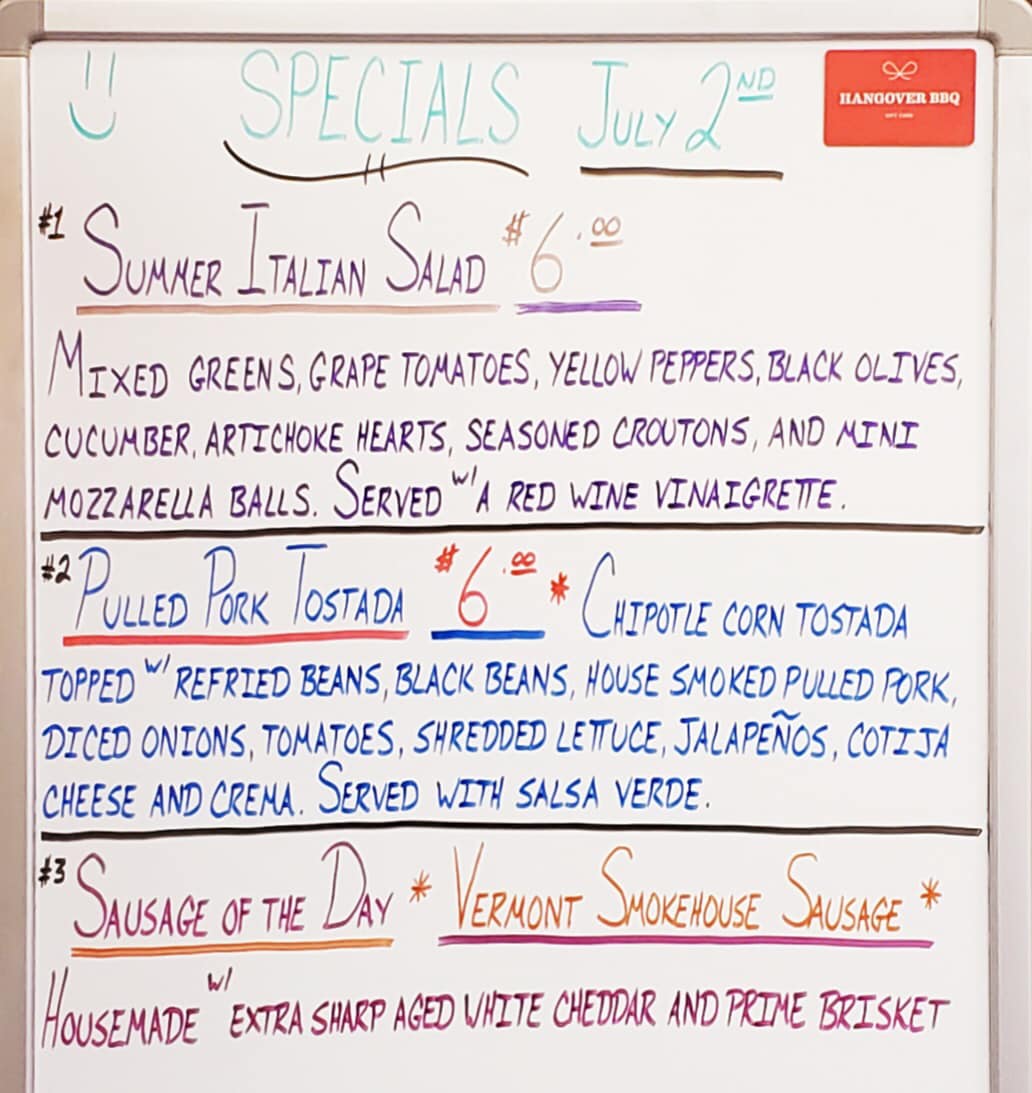 SPECIALS JULY 2ND
HANGOVER BBQ
GIFT CARD
#1 SUMMER ITALIAN SALAD $6.00
MIXED GREENS, GRAPE TOMATOES, YELLOW PEPPERS, BLACK OLIVES,
CUCUMBER, ARTICHOKE HEARTS, SEASONED CROUTONS, AND MINI
MOZZARELLA BALLS. SERVED W/ A RED WINE VINAIGRETTE.
#2 PULLED PORK TOSTADA $6.00 * CHIPOTLE CORN TOSTADA
TOPPED W/ REFRIED BEANS, BLACK BEANS, HOUSE SMOKED PULLED PORK,
DICED ONIONS, TOMATOES, SHREDDED LETTUCE, JALAPEÑOS, COTIJA
CHEESE AND CREMA. SERVED WITH SALSA VERDE.
#3 SAUSAGE OF THE DAY * VERMONT SMOKEHOUSE SAUSAGE *
HOUSEMADE W/ EXTRA SHARP AGED WHITE CHEDDAR AND PRIME BRISKET